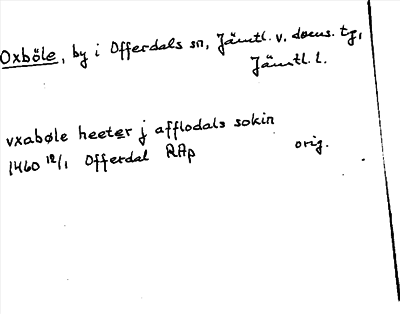 Oxböle, by i Offerdals sn, Jämtl. v. doms. tg,
Jämtl. l.
vxabøle heeter j afflodals sokin
1460 12/1 Offerdal RAp orig.